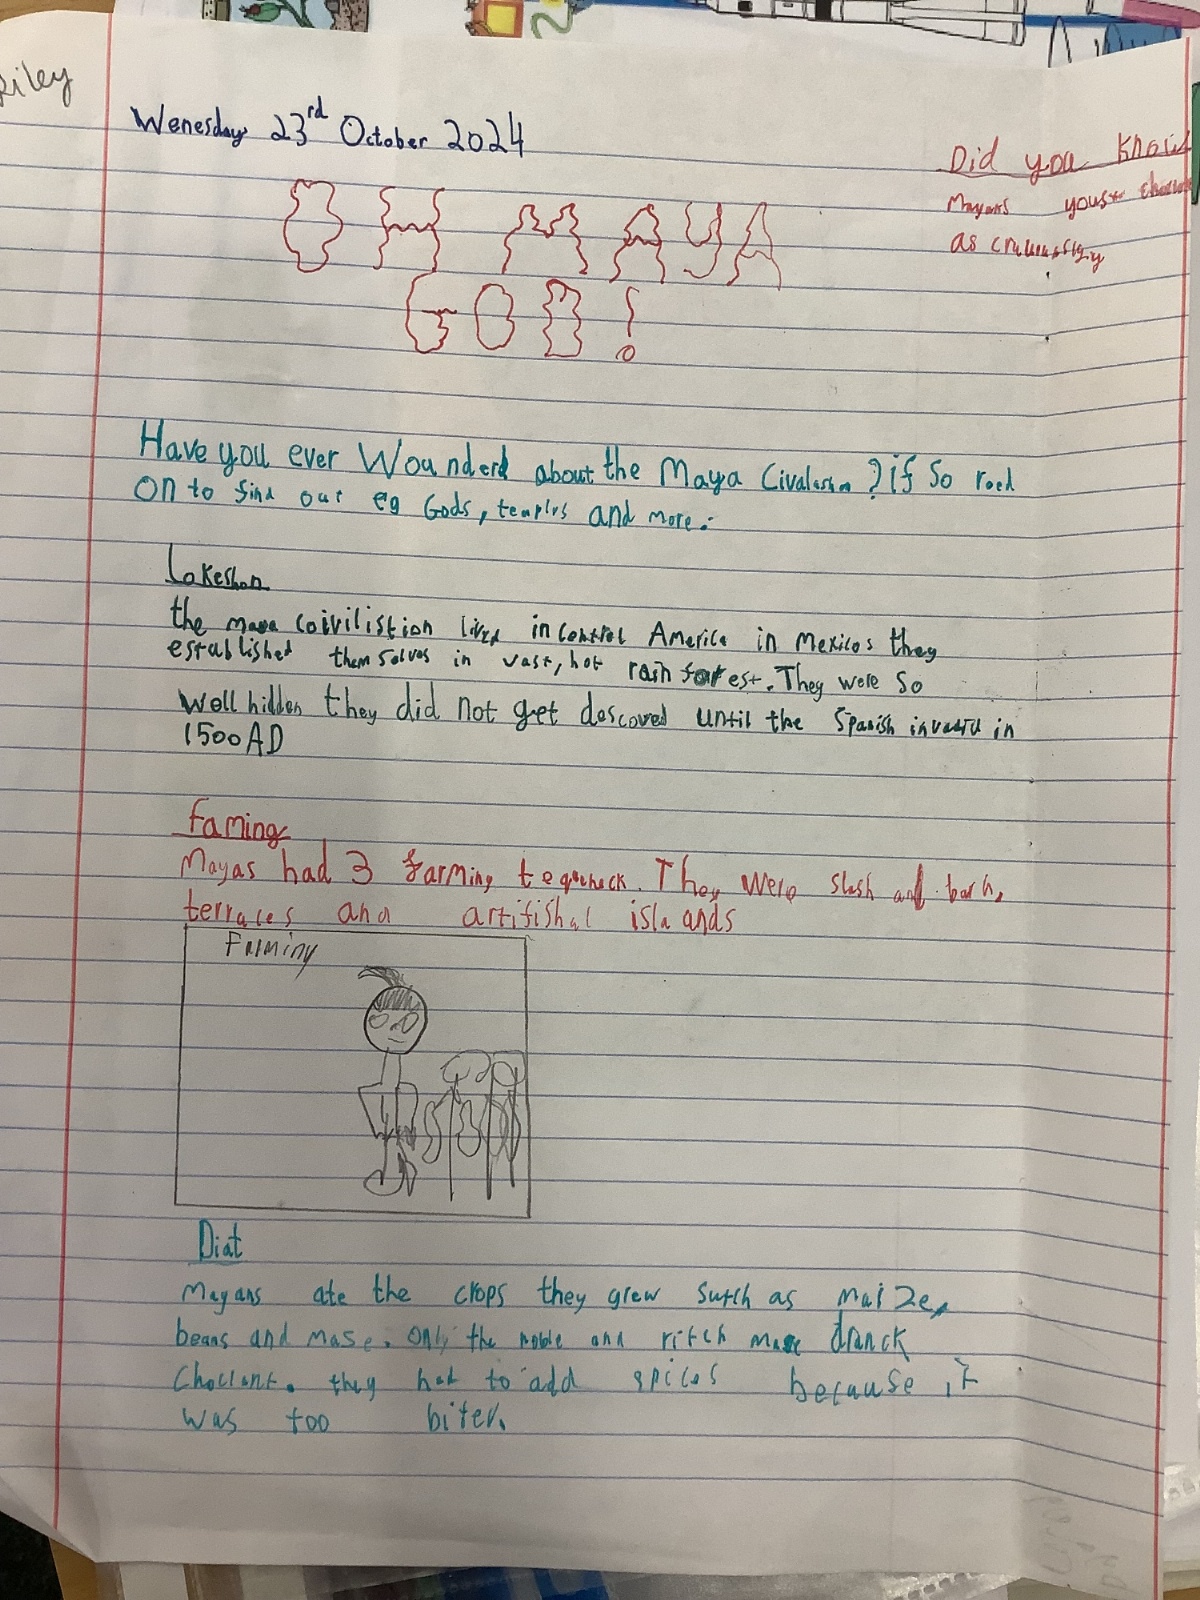 Riley
Wenesday 23rd October 2024
OH MAYA
GOD!
Did you know
Mayans yous
as
Have you ever Wounderd about the Maya Civalashn ? if So reed
On to find our eg Gods, temples and more.
Lokeshon
the maya coivilistion lived in central America in Mexicos they
established themsolves in vast, hot rain forest. They were so
well hidden they did not get descoved until the Spanish invaded in
1500AD
Faming
Mayas had 3 farming tequeheck. They were slash and barh,
terraces and artifishal islands
Farming
Diat
Mayans ate the crops they grew sutch as maize,
beans and mase. Only the noble and ritch maya dranck
Chocllant. they had to add spices because it
was too biter.